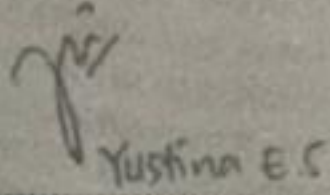 Yustina E.S